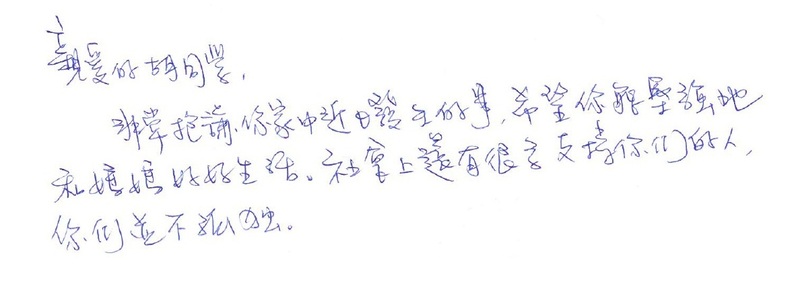 親爱的胡同學,
非常抱謙你家中近日發生的事,希望你能堅強地
和媽媽好好生活。社會上還有很多支持你们的人,
你们並不孤独。